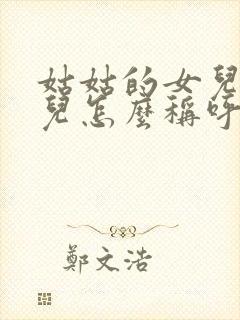 姑姑的女兒
兒怎麼稱呼
鄭文浩